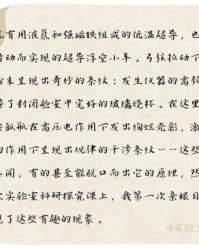 有用液氮和强磁铁组成的低温超导，也
动而实现的超导浮空小车。弓弦拉动下
末呈现出奇妙的条纹；发生仪器的高频
了封闭舱室中完好的玻璃烧杯。在这里
瓶在高压电作用下发出绚烂光彩，激
的作用下呈现出规律的干涉条纹……这些
闻，有的甚至能脱口而出它的原理，然
实验室科研探究课上，我第一次亲眼目
了这些有趣的现象。